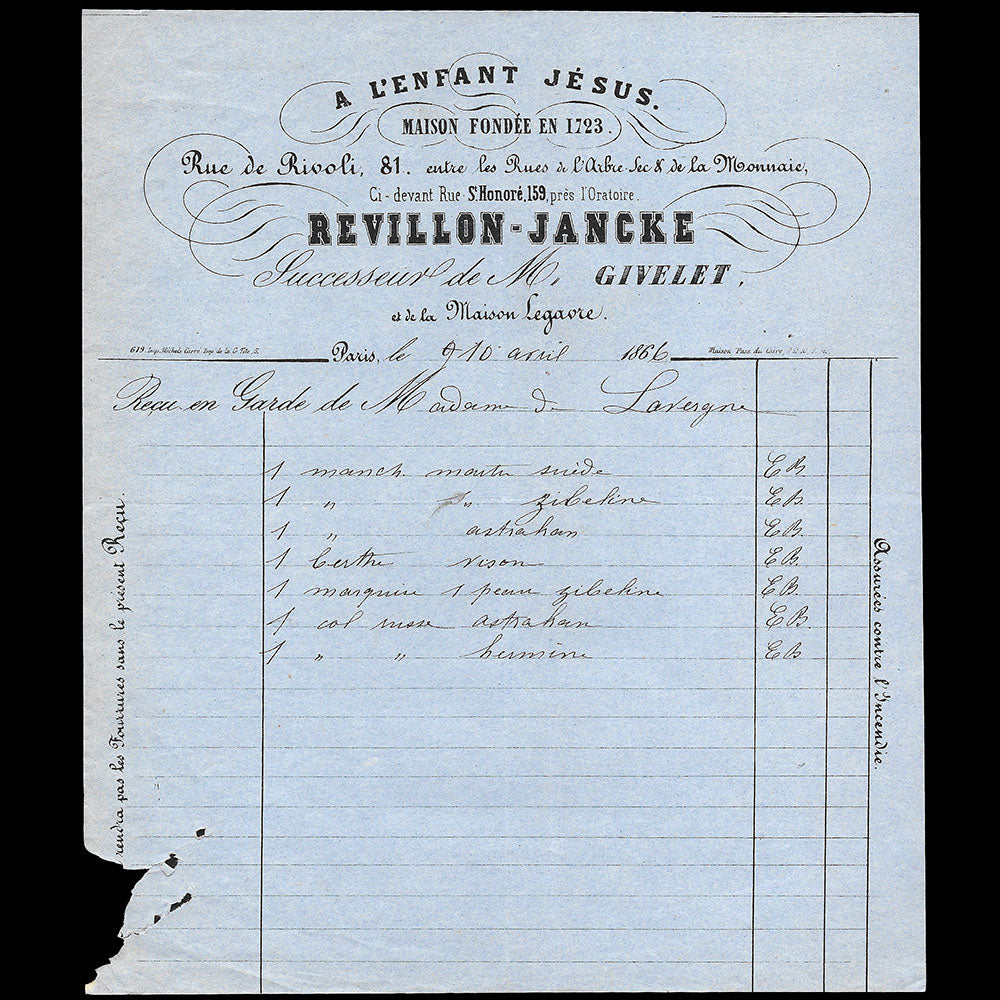 A L'ENFANT JÉSUS.
MAISON FONDÉE EN 1723.
Rue de Rivoli, 81. entre les Rues de l'Arbre-Sec & de la Monnaie,
Ci-devant Rue St Honoré, 159, près l'Oratoire.
REVILLON-JANCKE
Successeur de M. GIVELET,
et de la Maison Legavre.
Paris, le 10 avril 1866
Reçu en Garde de Madame de Lavergne
1 manch. martre suède EB
1 " " zibeline EB
1 " astrahan EB.
1 berthe vison EB.
1 marquise 1 peau zibeline EB.
1 col russe astrahan EB.
1 " " hermine EB
rendra pas les Fourrures sans le présent Reçu.
Assurées contre l'Incendie.